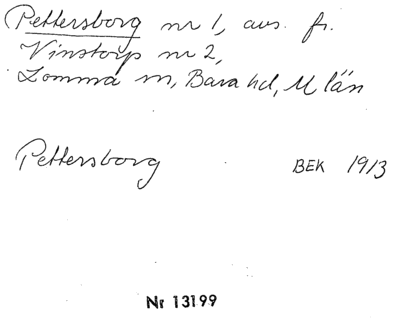 Pettersborg nr 1, avs. fr.
Vinstorp nr 2,
Lomma sn, Bara hd, M län
Pettersborg BEK 1913
Nr 13199